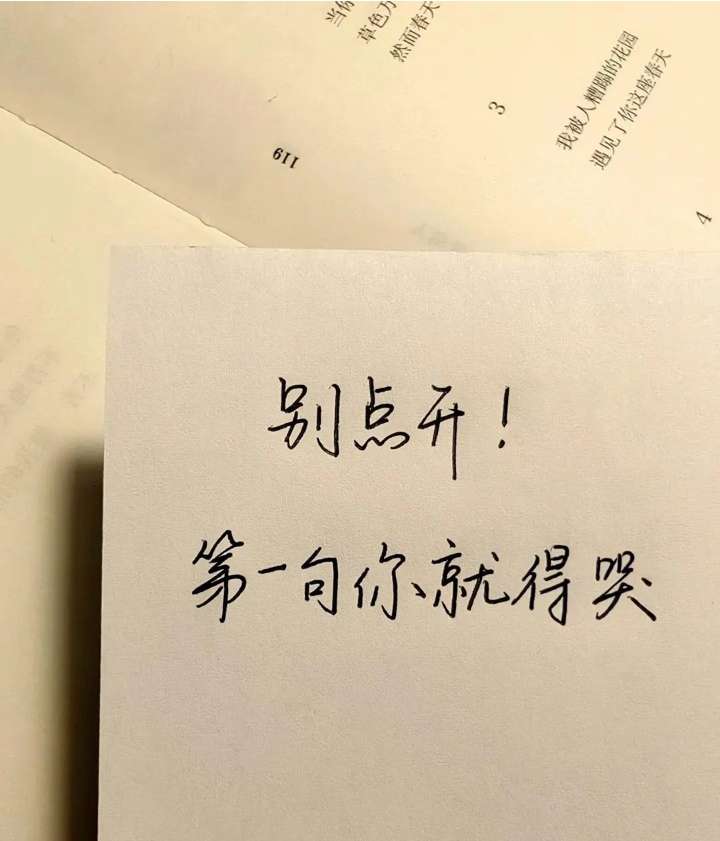 当你
草色万
然而春天
3
我被人糟蹋的花园
遇见了你这座春天
4
119
别点开!
第一句你就得哭